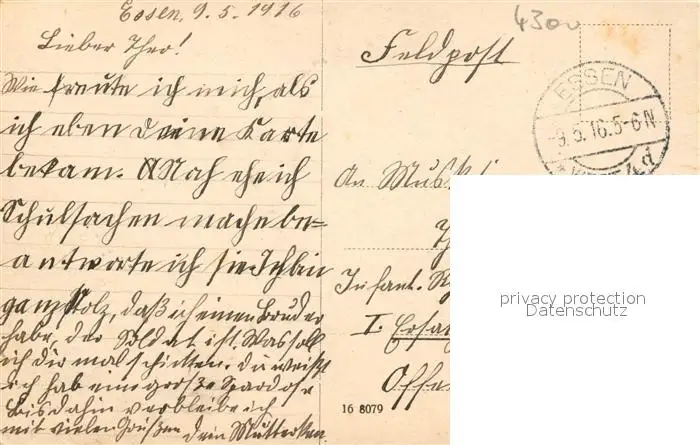 Essen, 9. 5. 1916
Lieber Theo!
Wie freute ich mich, als
ich eben deine Karte
bekam. Nah ehe ich
Schulsachen mache be=
antworte ich sie Ich bin
ganz stolz, daß ich einen Bruder
habe, der Soldat ist. Was soll
ich dir mal schicken. Du weißt
ich hab eine große Spardose
Bis dahin verbleibe ich
mit vielen Grüßen dein
4300
Feldpost
ESSEN
-9.5.16.5-6N
An Musk
Infant. R
I. Ersa
Offe
16 8079
privacy protection
Datenschutz